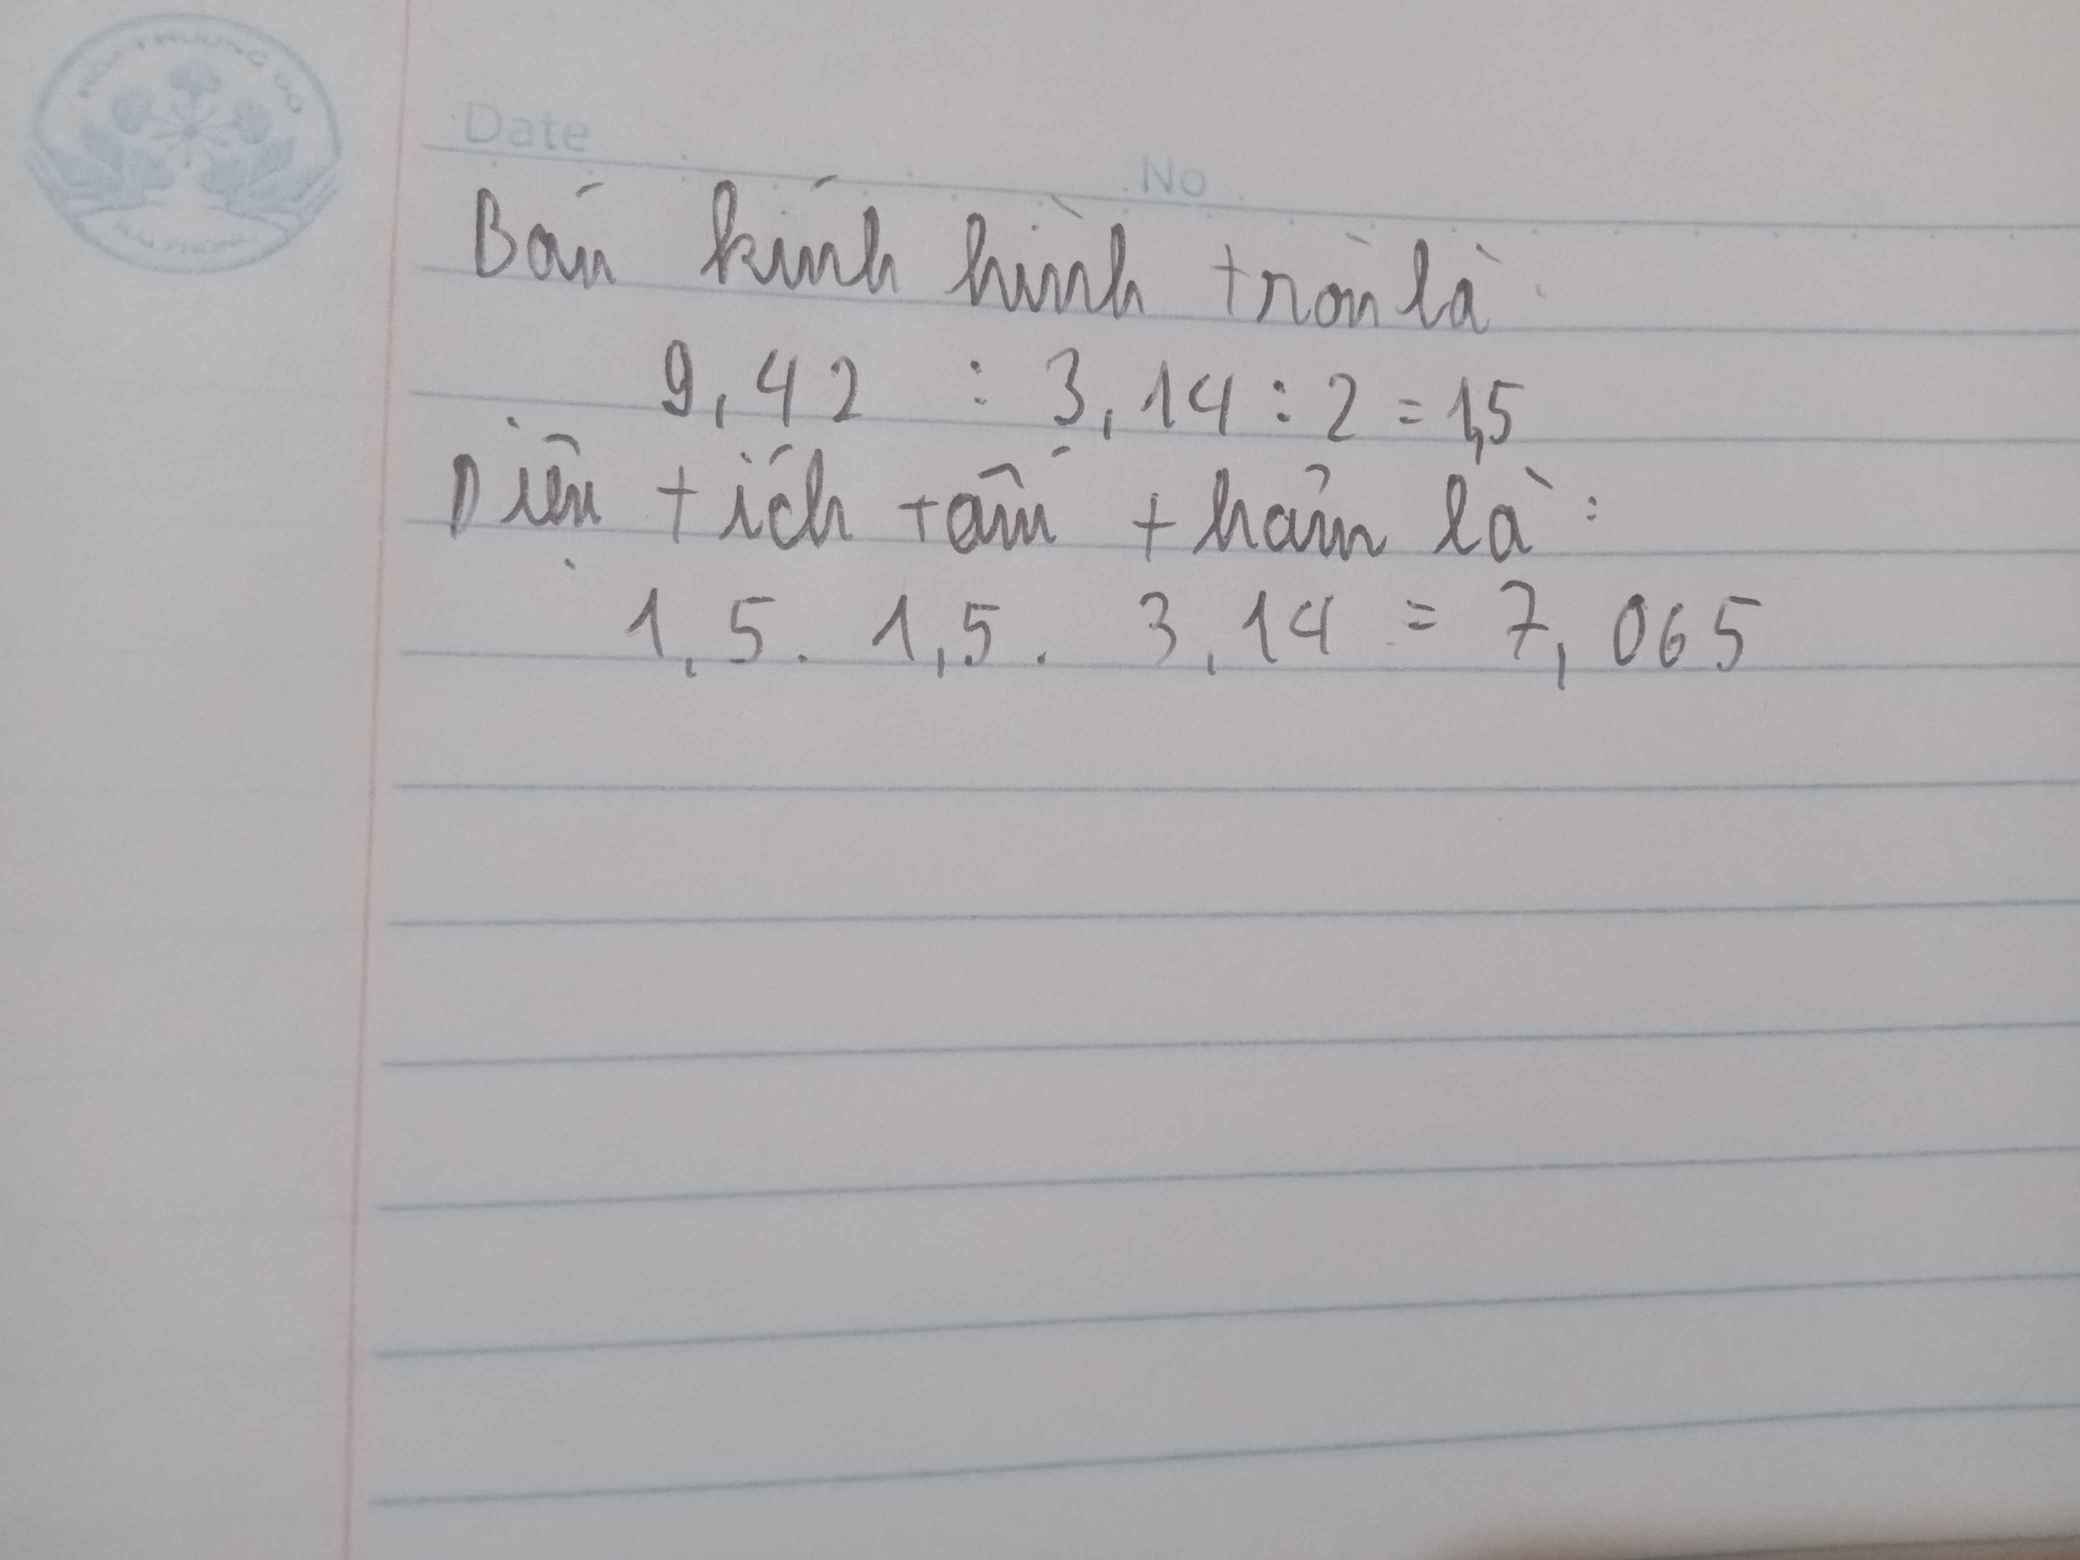 Date
No
Bán kính hình tròn là
9,42 : 3,14 : 2 = 1,5
Diện tích tấm thảm là :
1,5 . 1,5 . 3,14 = 7,065